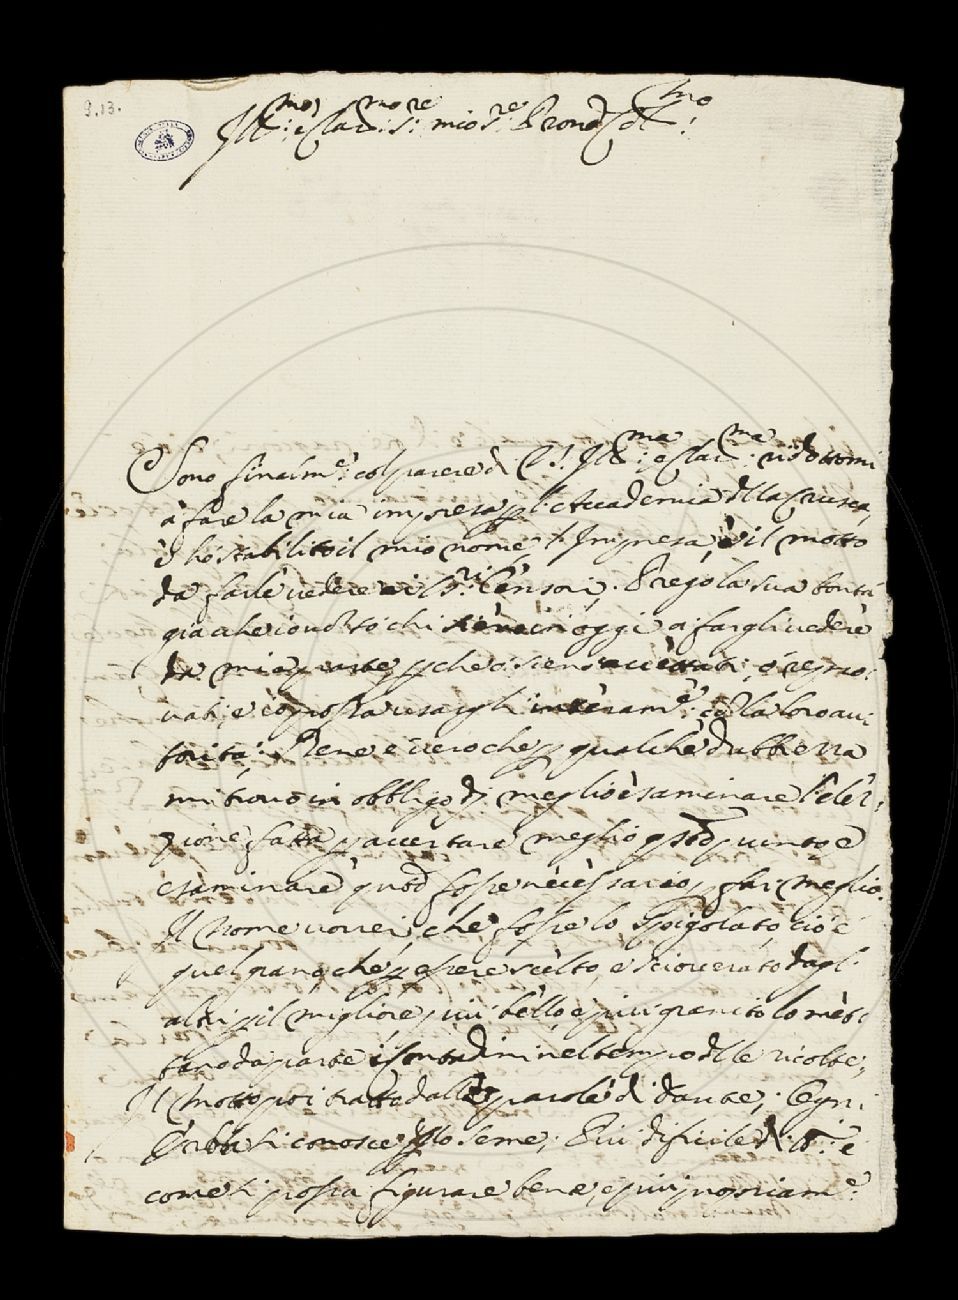 9.13.
Ill:mo e Clar:mo S:re mio S:re Prone Col:mo
Sono finalm:e col parere di V.S. Ill:ma e Clar:ma ridottomi
à fare la mia impresa p l'Accademia dlla Crusca,
è hò stabilito il mio nome, l'Impresa, è il motto
da farle vedere ai SS:ri Censori; Prego la sua bontà
già che
oggi a fargli vedere
da mia parte, p che ò sieno accettati, ò repro:
vati, e composta
interam:e colla loro au:
torità; Bene è vero che p qualche dubbiezza
mi trovo in obbligo di meglio esaminare l'ele:
zione fatta p accertare meglio qsto punto, e
esaminare quod fosse necessario p far meglio.
Il Nome vorrei, che fosse lo Spigolato, cioè
quel grano che p essere scelto, e sciouerato dagl'
altri p il migliore, più bello, e più granito lo met:
tano da parte i Contadini nel tempo dlle ricolte;
Il Motto poi tratto dalle parole di Dante; Ogni
Erba si conosce p lo seme; Più dificile di t:o è
come si possa figurare bene, e più propriam:e